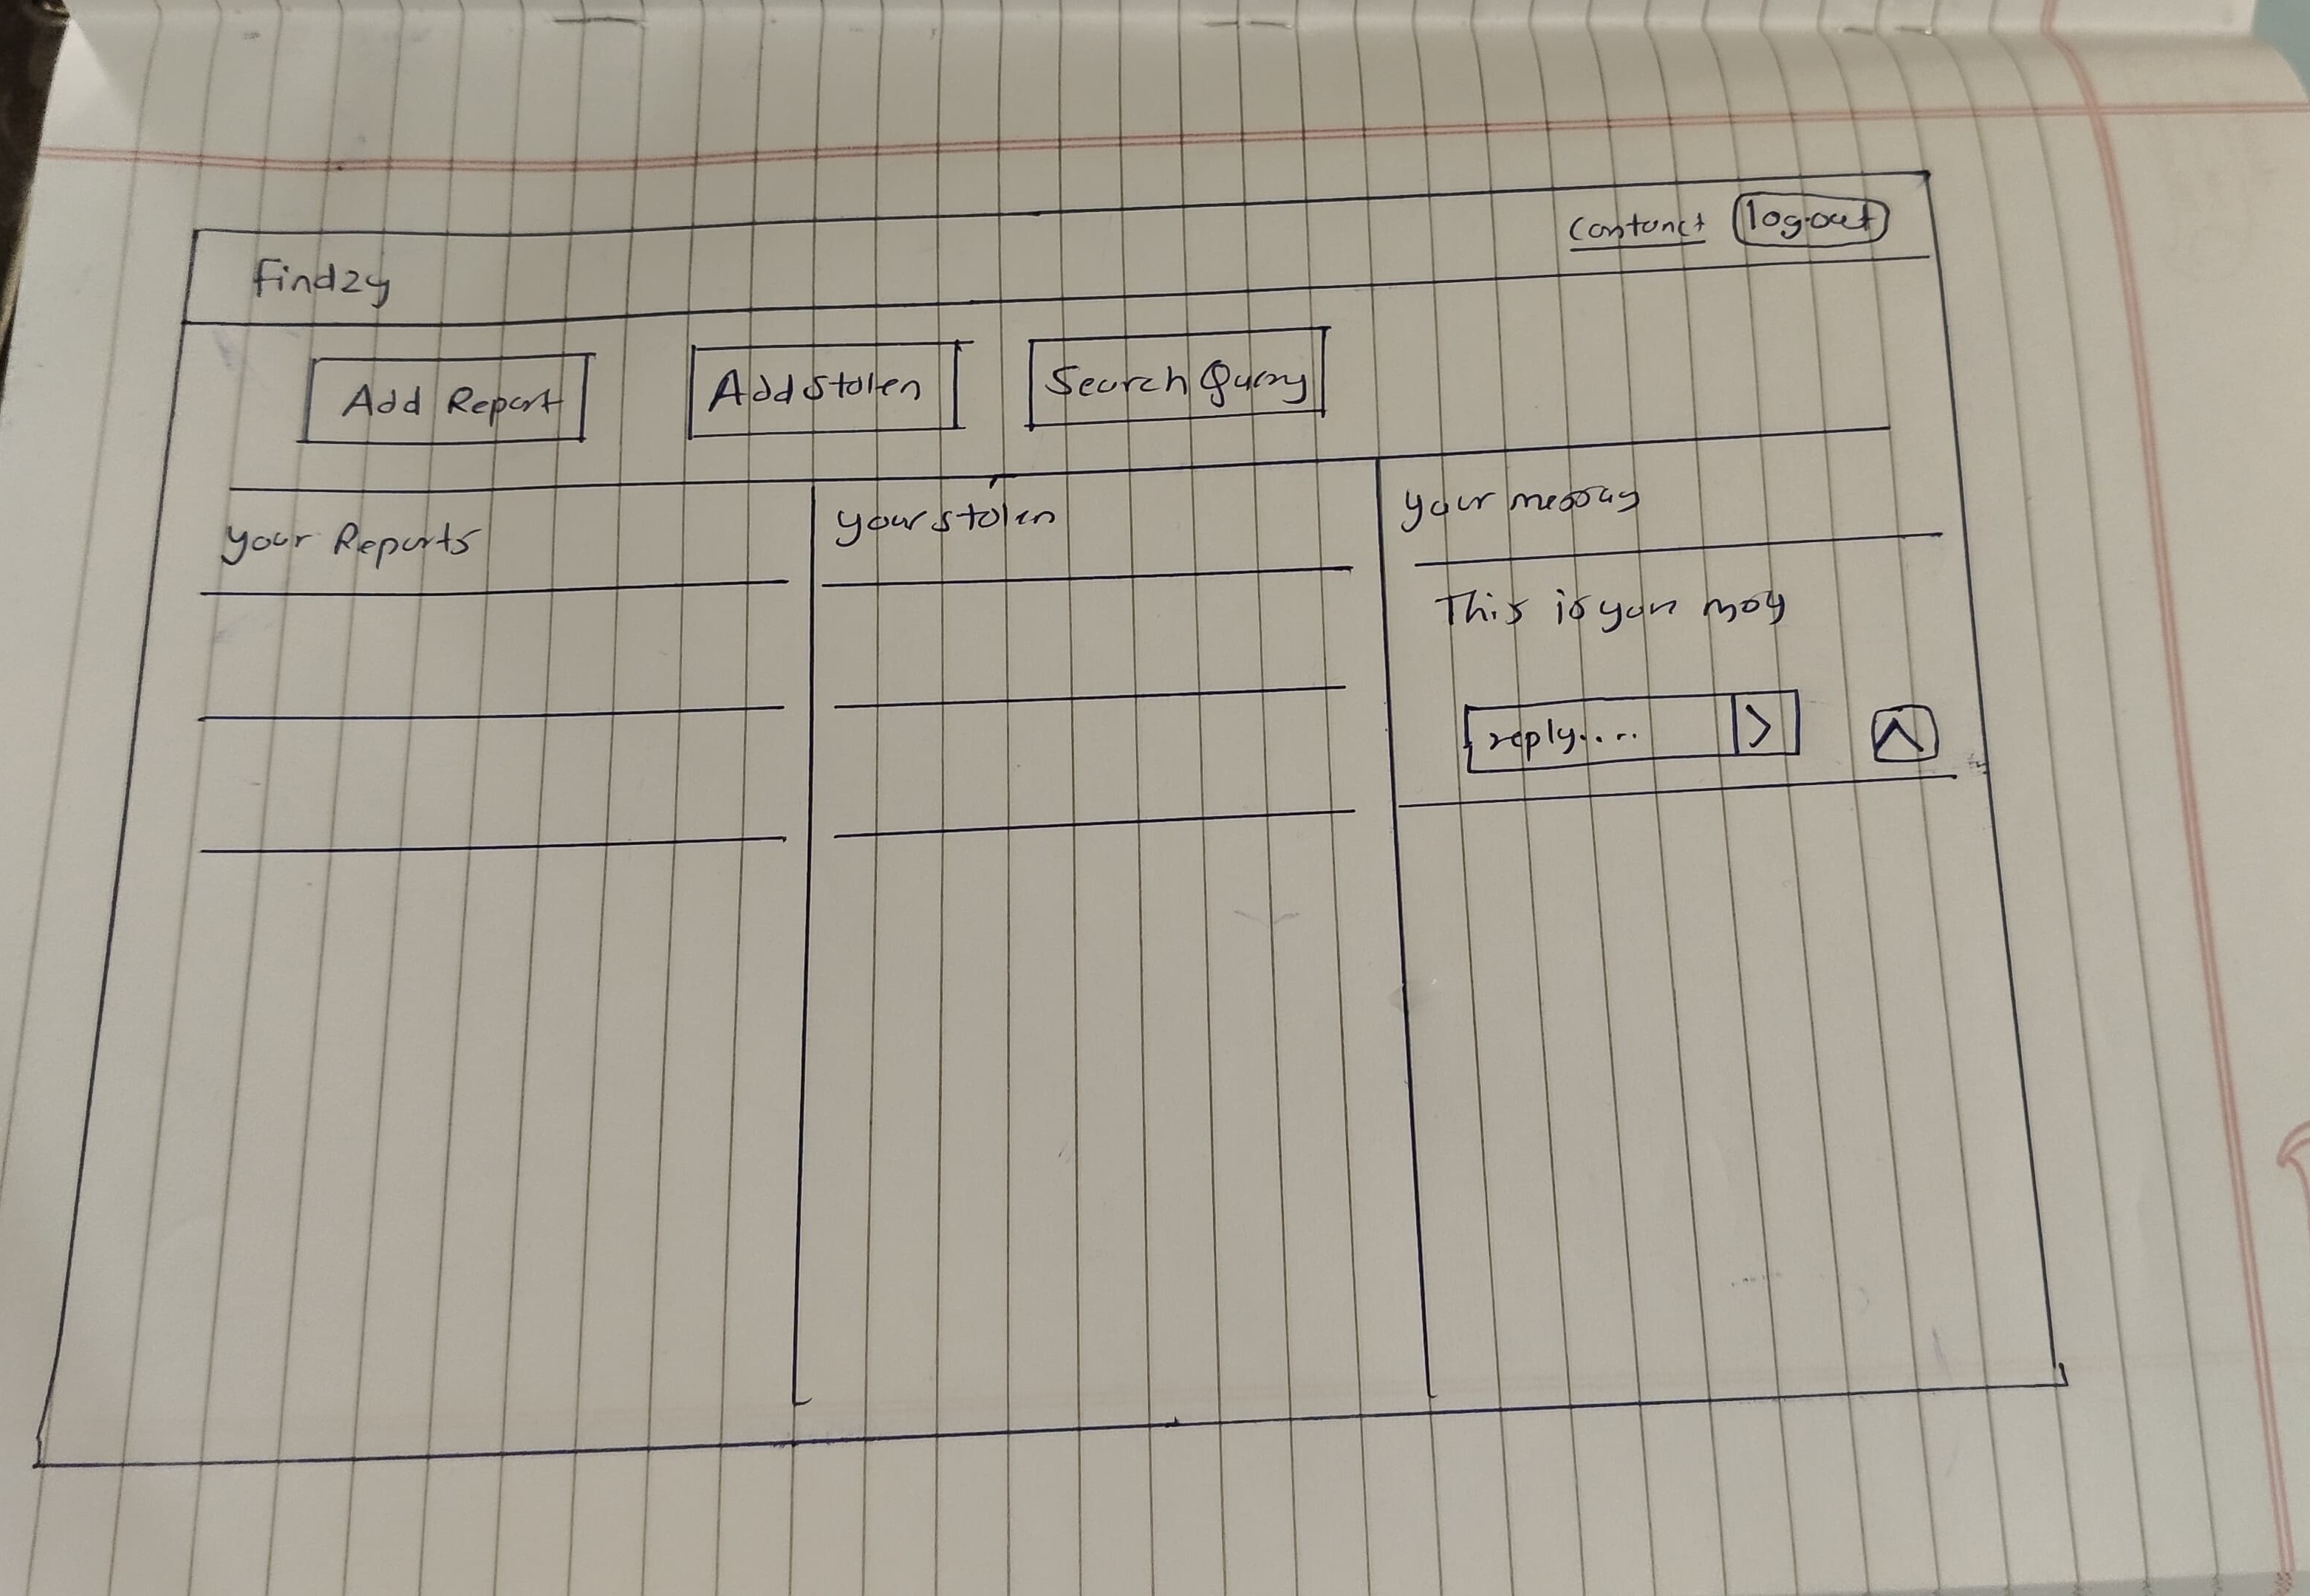 findzy
contanct
logout
Add Report
Add stolen
Search Query
your Reports
your stolen
your messag
This is your msg
reply....